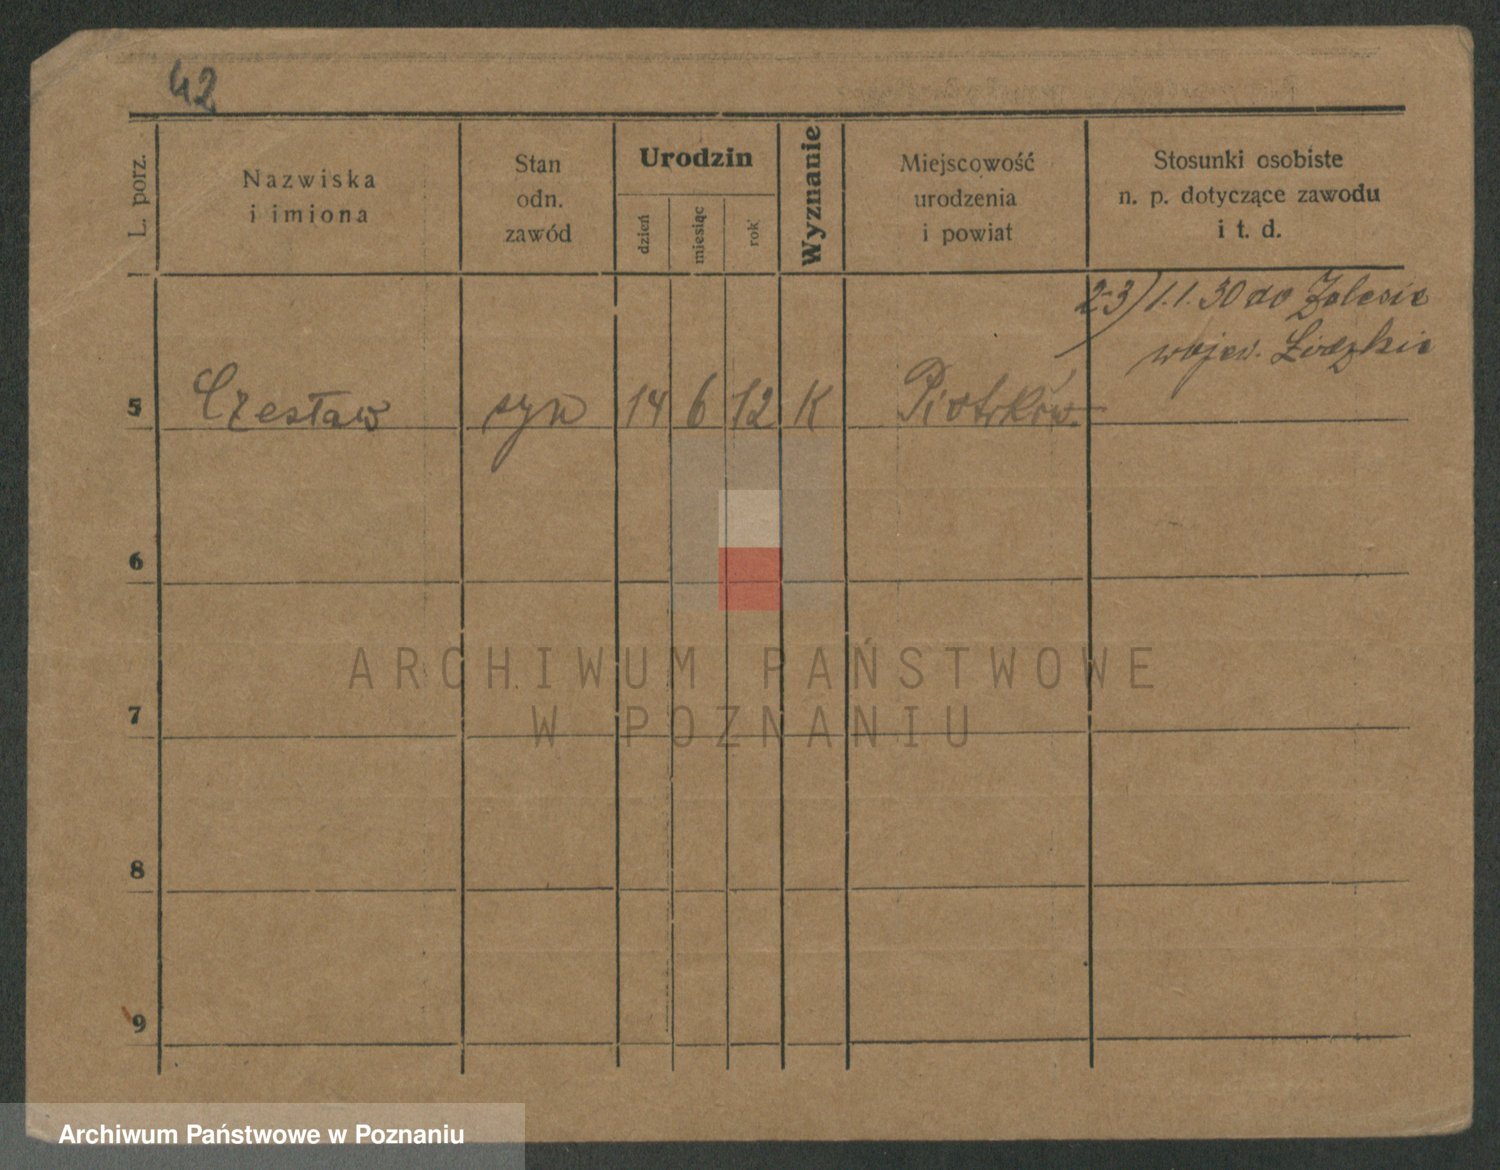 42
L. porz.
Nazwiska
i imiona
Stan
odn.
zawód
Urodzin
dzień
miesiąc
rok
Wyznanie
Miejscowość
urodzenia
i powiat
Stosunki osobiste
n. p. dotyczące zawodu
i t. d.
2-3) 1.1.30 do Zalesie
wojew. Łódzkie
5 Czesław syn 14 6 12 K Piotrków.
6
7
8
9
ARCHIWUM PAŃSTWOWE
W POZNANIU
Archiwum Państwowe w Poznaniu